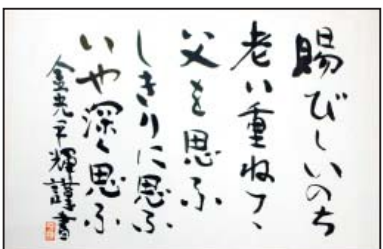 賜びしいのち
老い重ねつゝ
父を思ふ
しきりに思ふ
いや深く思ふ
金光平輝謹書